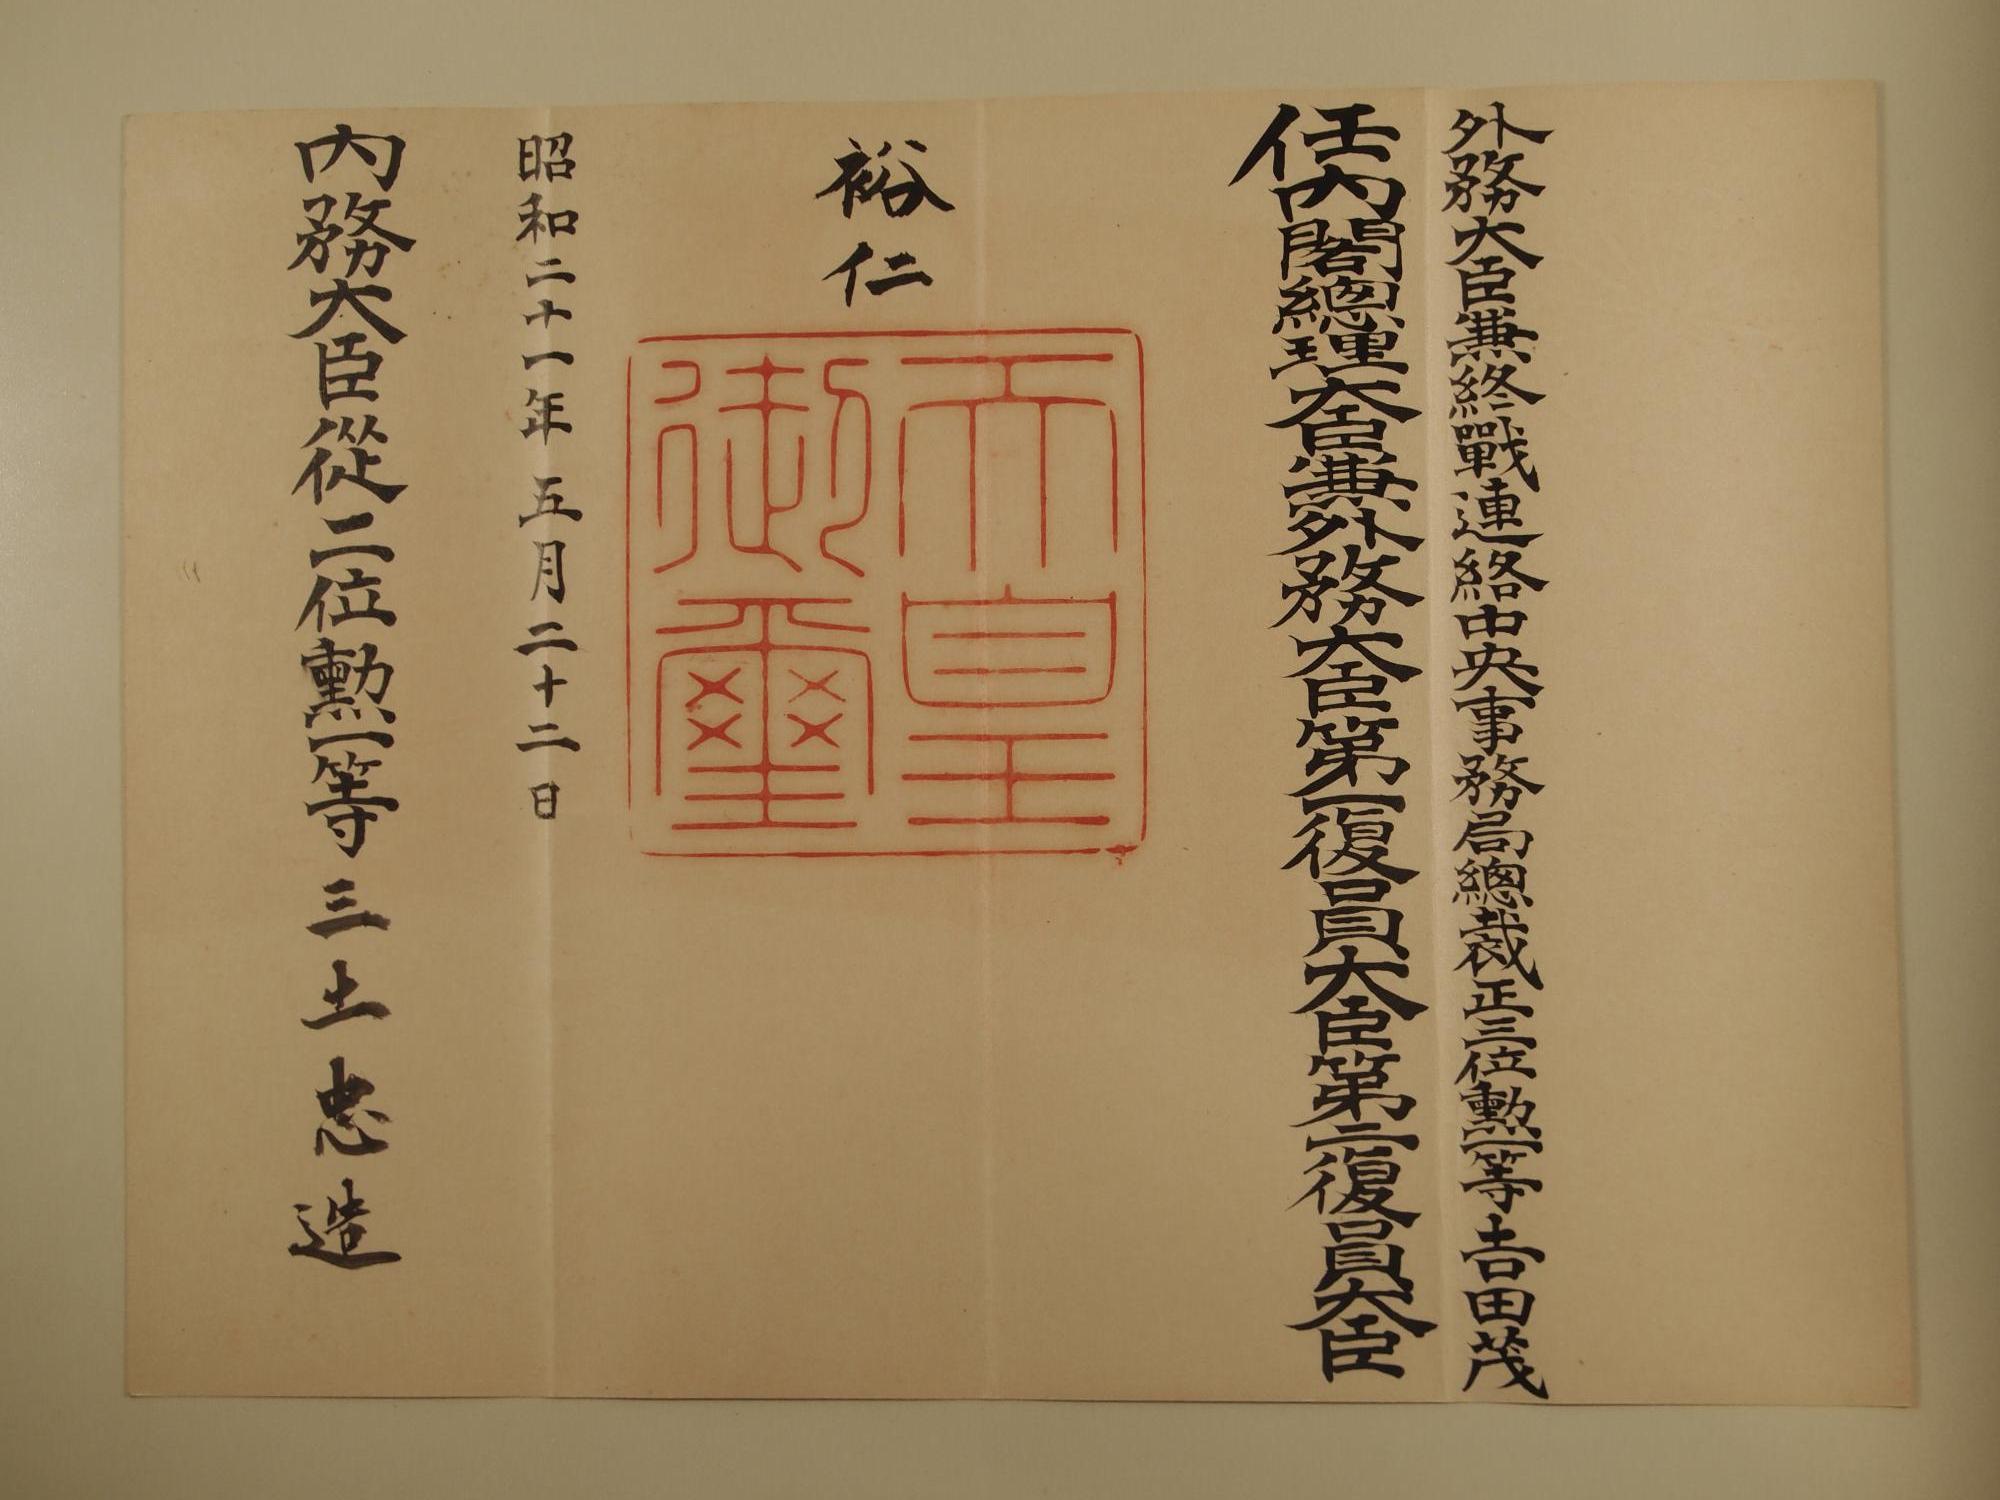 外務大臣兼終戰連絡中央事務局總裁正三位勲一等吉田茂
任内閣總理大臣兼外務大臣第一復員大臣第二復員大臣
裕仁
天皇
御璽
昭和二十一年五月二十二日
内務大臣從二位勲一等三土忠造